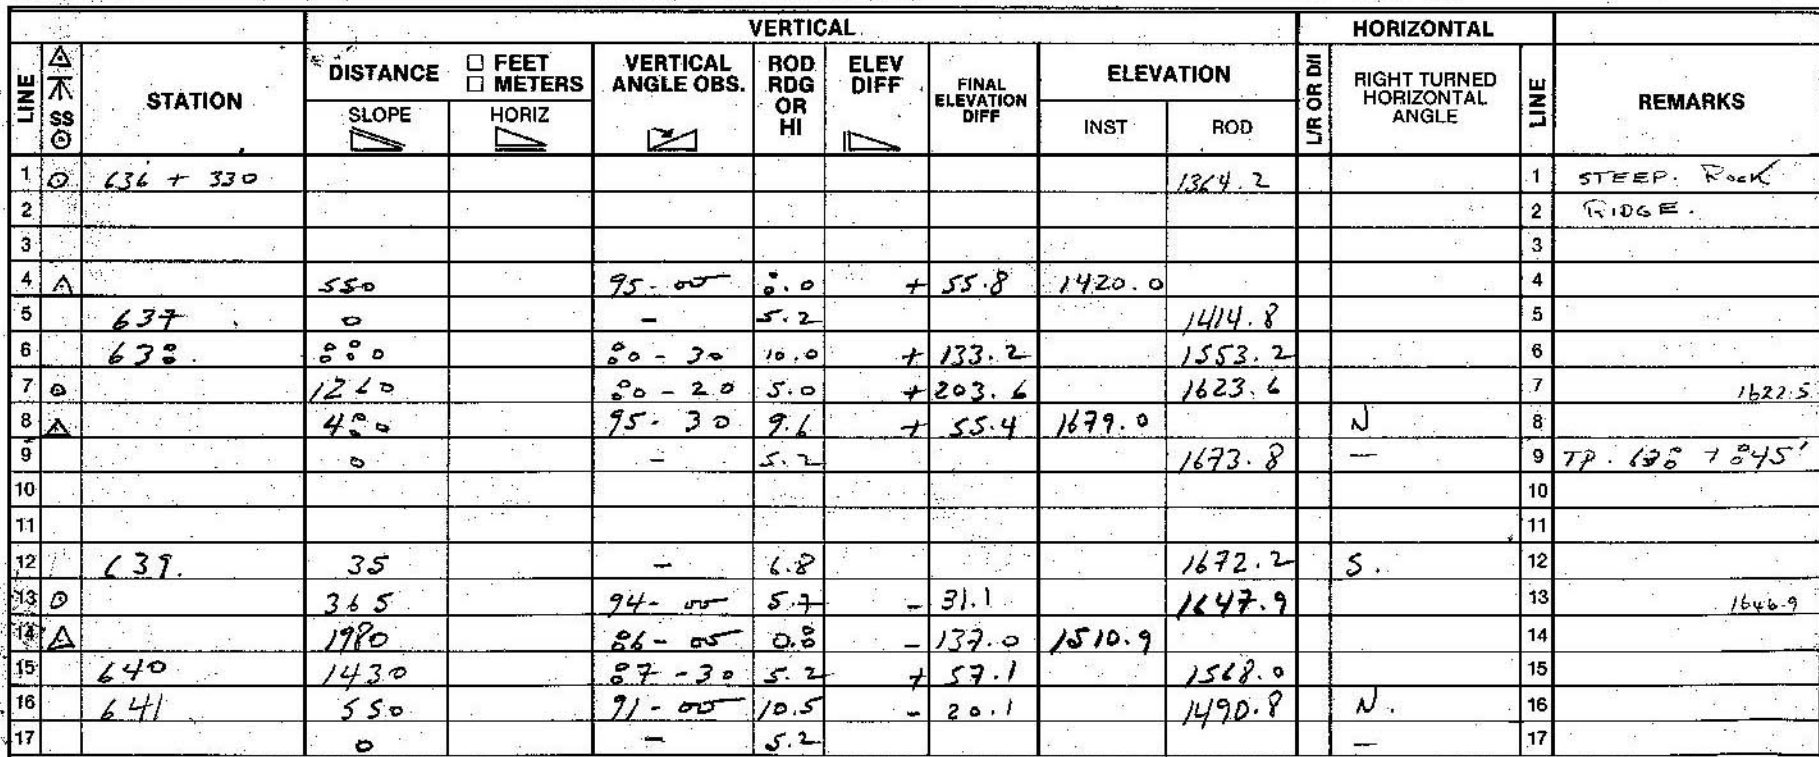 VERTICAL HORIZONTAL
LINE SS STATION DISTANCE □ FEET □ METERS SLOPE HORIZ VERTICAL ANGLE OBS. ROD RDG OR HI ELEV DIFF FINAL ELEVATION DIFF ELEVATION INST ROD L/R OR D/I RIGHT TURNED HORIZONTAL ANGLE LINE REMARKS
1 636 + 330 1364.2 1 STEEP. ROCK
2 2 RIDGE.
3 3
4 550 95-00 8.0 + 55.8 1420.0 4
5 637 0 - 5.2 1414.8 5
6 638. 880 80-30 10.0 + 133.2 1553.2 6
7 1260 80-20 5.0 + 203.6 1623.6 7 1622.5
8 480 95-30 9.6 + 55.4 1679.0 N 8
9 0 - 5.2 1673.8 — 9 TP. 638 + 845'
10 10
11 11
12 639. 35 - 6.8 1672.2 S. 12
13 365 94-00 5.7 - 31.1 1647.9 13 1646.9
14 1980 86-00 0.8 - 137.0 1510.9 14
15 640 1430 87-30 5.2 + 57.1 1568.0 15
16 641 550 91-00 10.5 - 20.1 1490.8 N. 16
17 0 - 5.2 — 17